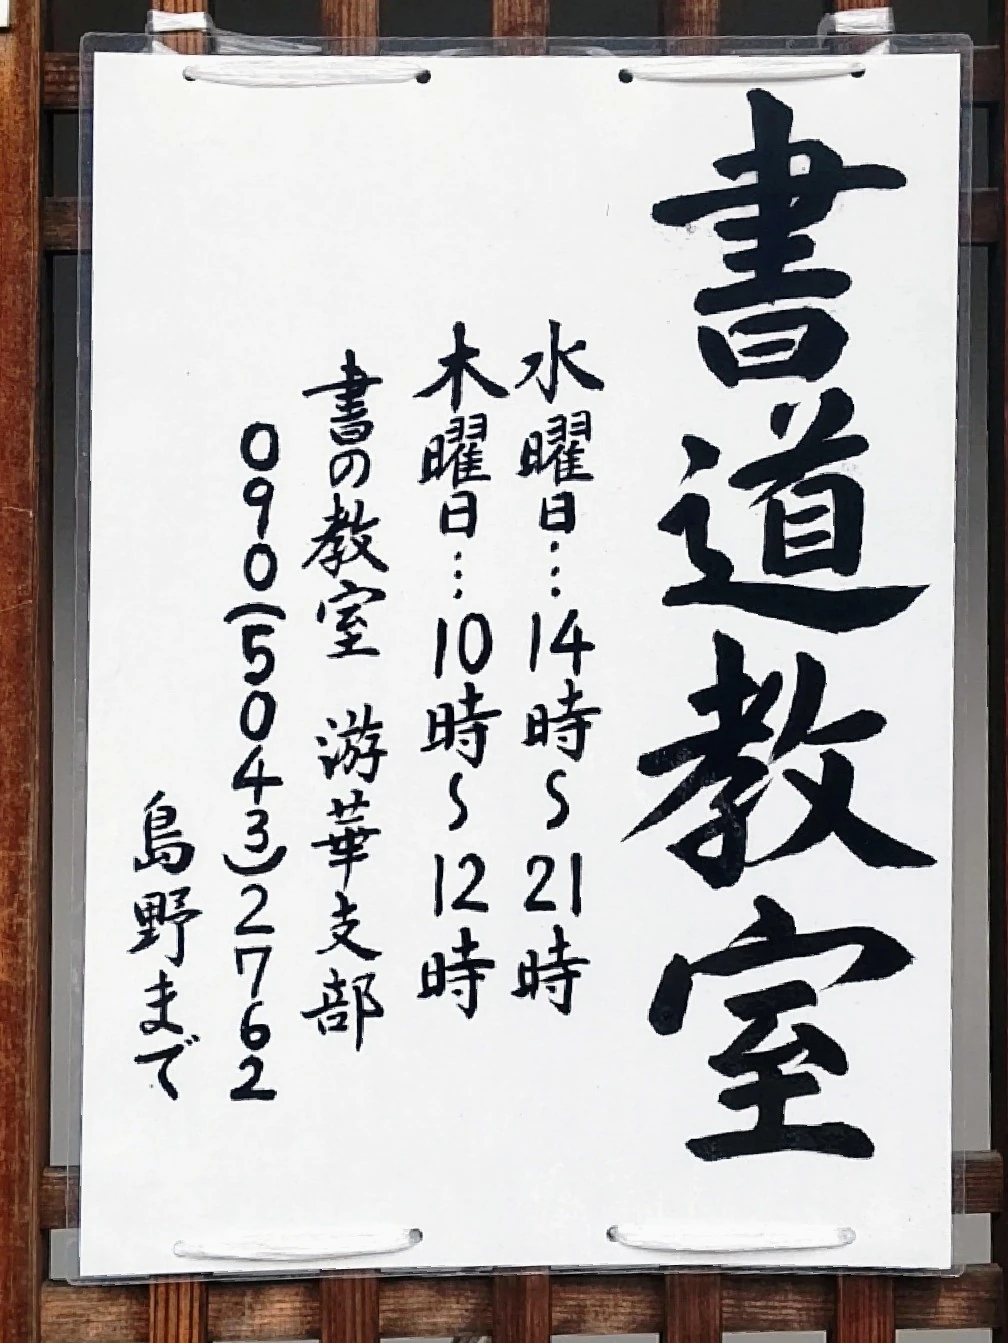 書道教室
水曜日…14時〜21時
木曜日…10時〜12時
書の教室 游華支部
090(5043)2762
島野まで